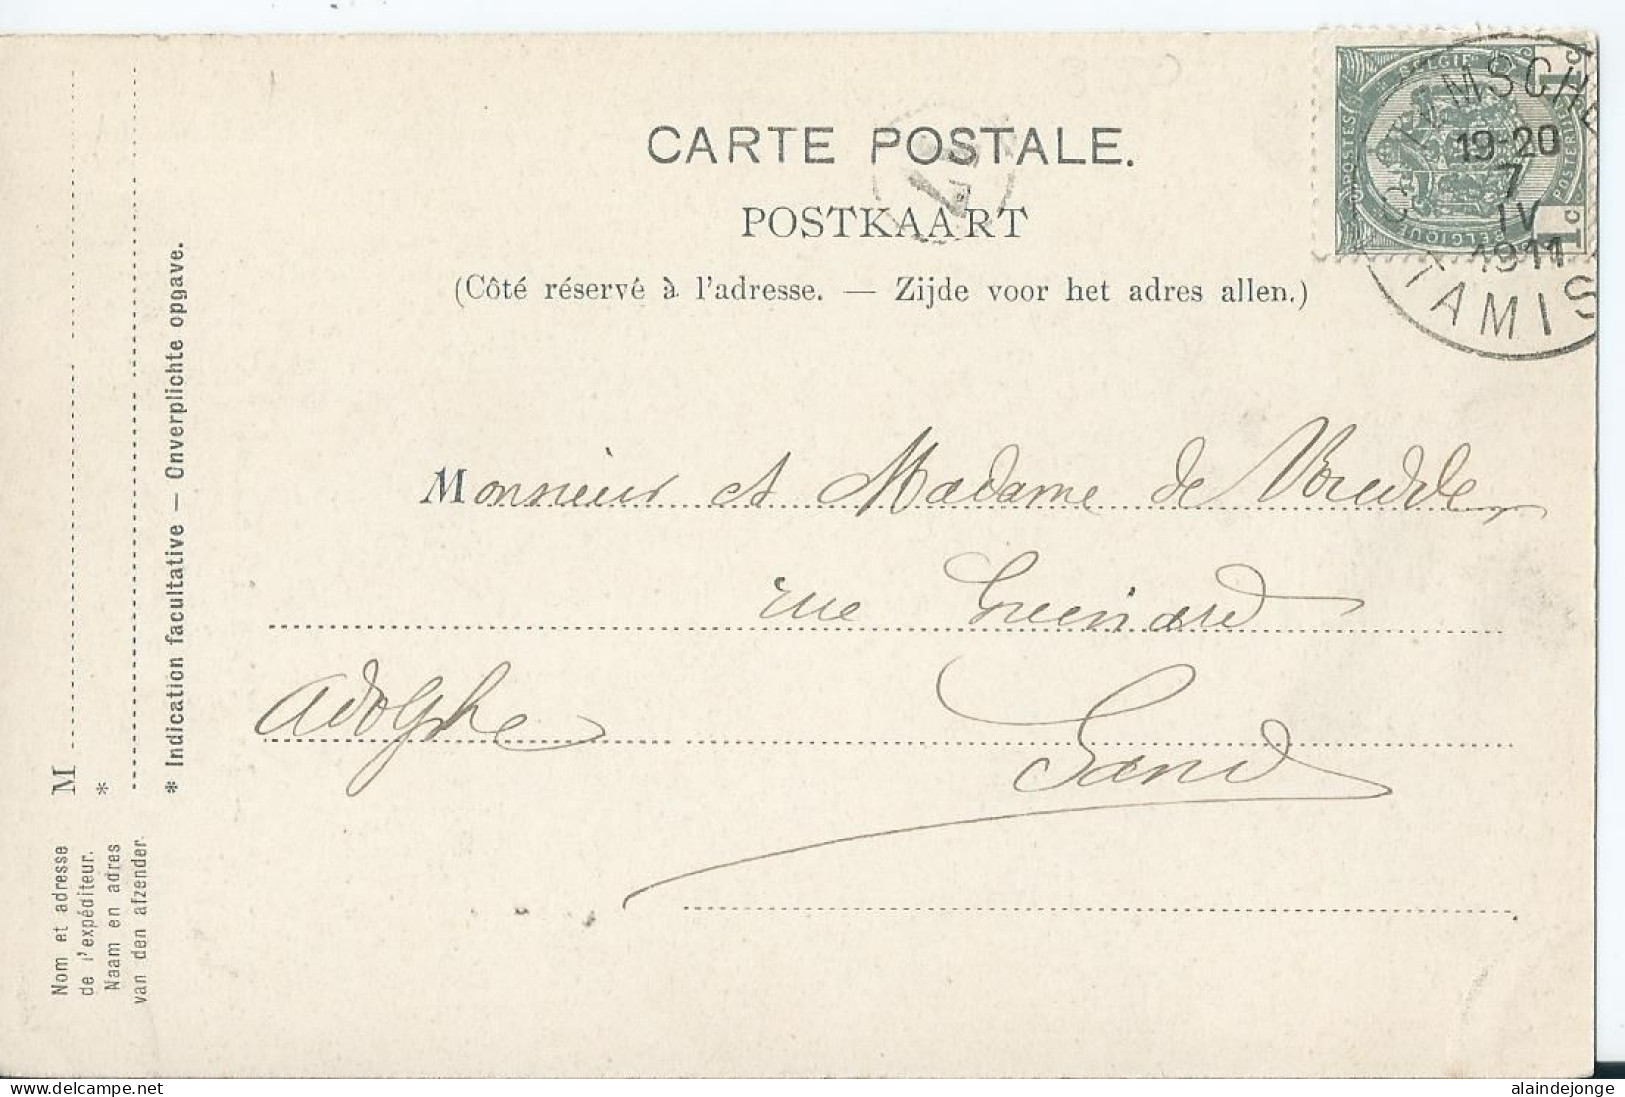 CARTE POSTALE.
POSTKAART
(Côté réservé à l'adresse. — Zijde voor het adres allen.)
BELGIE
POSTES
BELGIQUE
POSTERIJEN
1c
1c
19-20
7
IV
1911
TAMIS
Monsieur et Madame de Vreedde
rue Guinard
Adolphe
Gand
M
*
* Indication facultative — Onverplichte opgave.
Nom et adresse
de l'expéditeur.
Naam en adres
van den afzender
www.delcampe.net
alaindejonge